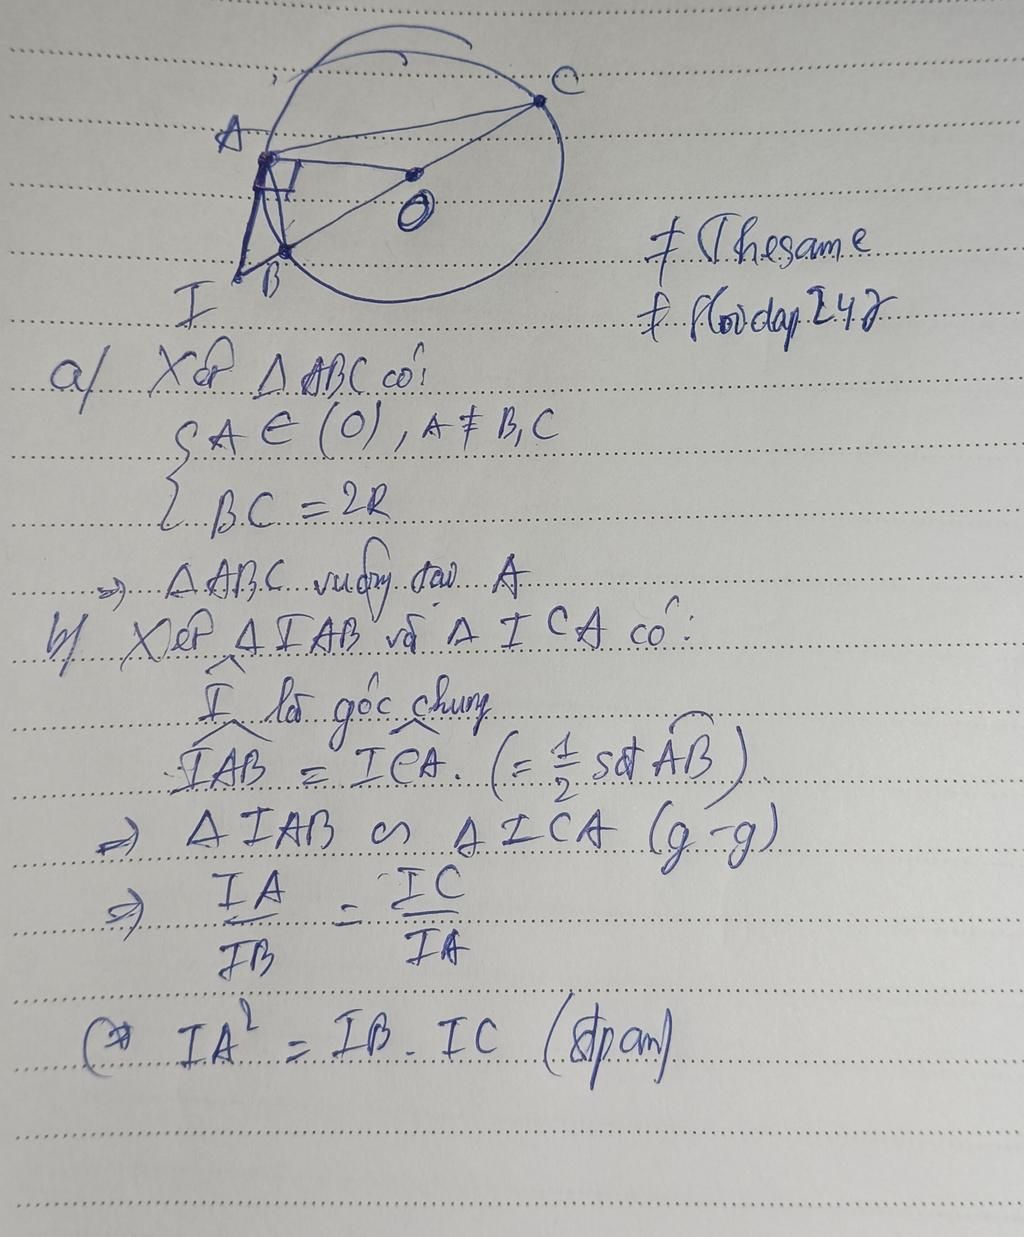 C
A
O
I B
≠ Thesame
≠ Hoidap247
a/ Xét Δ ABC có:
{ A ∈ (O), A ≠ B, C
BC = 2R
=> Δ ABC vuông tại A
b/ Xét Δ IAB và Δ ICA có:
Î là góc chung
\widehat{IAB} = \widehat{ICA} (= 1/2 sđ \overset{\frown}{AB})
=> Δ IAB ∽ Δ ICA (g-g)
=> IA/IB = IC/IA
(=> IA² = IB . IC (đpcm)